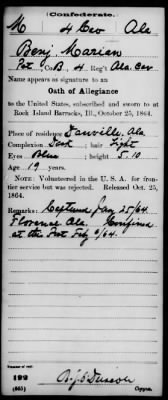 Confederate.
M 4 Cav Ala
Benj. Marian
Pvt. Co. B. 4 Reg't Ala. Cav
Name appears as signature to an
Oath of Allegiance
to the United States, subscribed and sworn to at
Rock Island Barracks, Ill., October 25, 1864.
Place of residence Danville, Ala.
Complexion Dark ; hair Light
Eyes Blue ; height 5.10
Age 19 years.
NOTE: Volunteered in the U. S. A. for fron-
tier service but was rejected. Released Oct. 25,
1864.
Remarks: Captured Jan 25/64
Florence Ala.
at the Post Feby 9/64.
Number of roll:
199
Copyist.